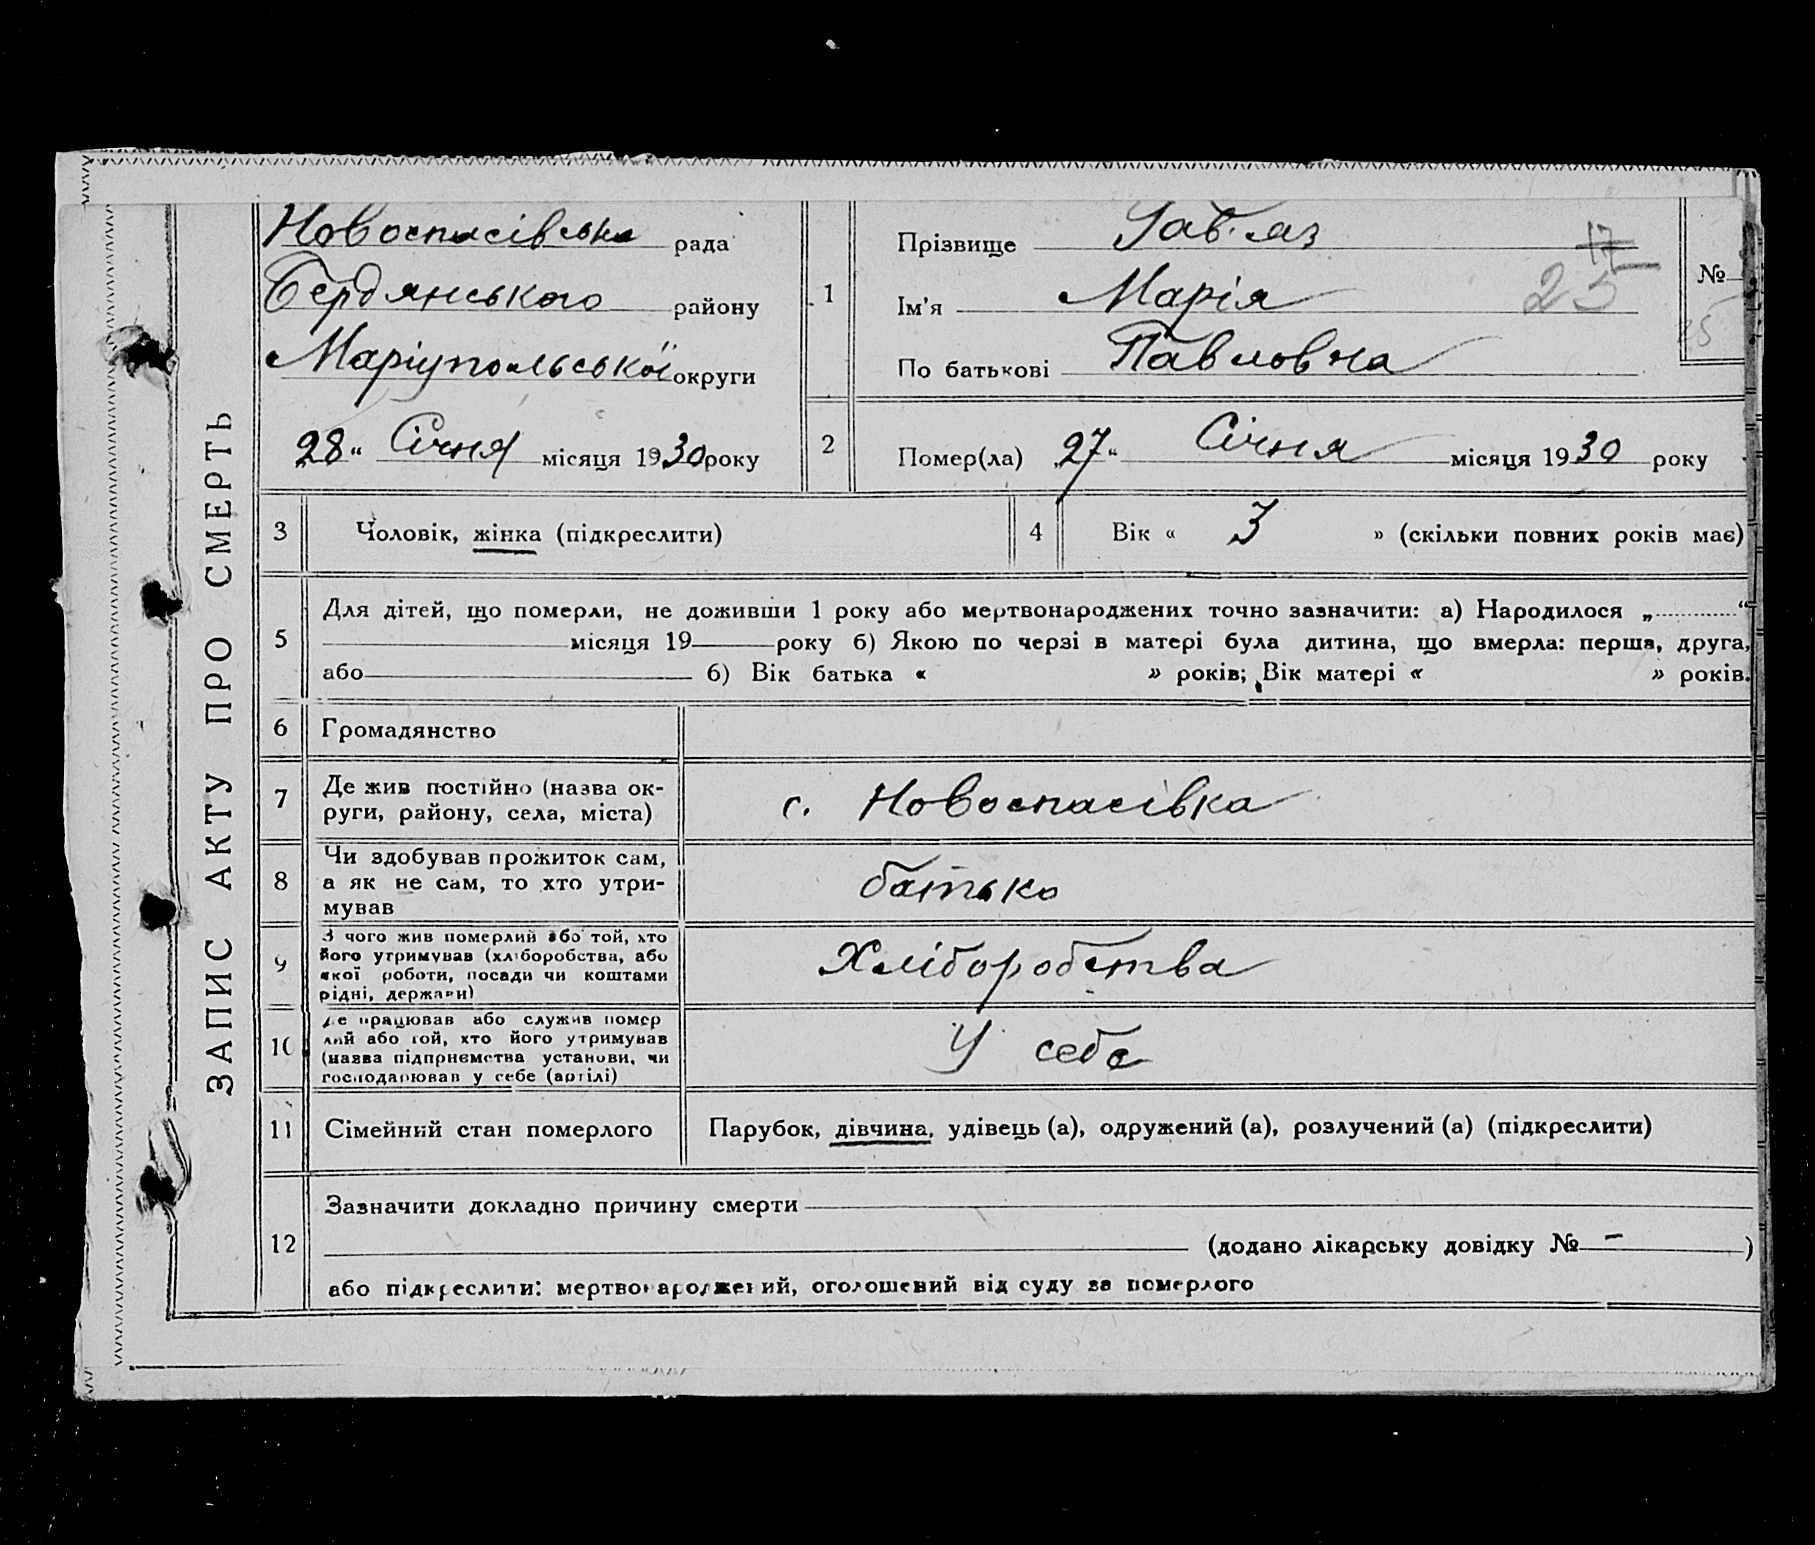 ЗАПИС АКТУ ПРО СМЕРТЬ
Новоспасівська рада
Бердянського району
Маріупольської округи
28" Січня місяця 1930 року
1
Прізвище
Ім'я Марія
По батькові Павловна
17
25
№
25
2 Помер(ла) 27" Січня місяця 1930 року
3 Чоловік, жінка (підкреслити)
4 Вік « 3 » (скільки повних років має)
5 Для дітей, що померли, не доживши 1 року або мертвонароджених точно зазначити: а) Народилося „ “
місяця 19 року б) Якою по черзі в матері була дитина, що вмерла: перша, друга,
або б) Вік батька « » років; Вік матері « » років.
6 Громадянство
7 Де жив постійно (назва ок-
руги, району, села, міста)
с. Новоспасівка
8 Чи здобував прожиток сам,
а як не сам, то хто утри-
мував
батько
9 З чого жив померлий або той, хто
його утримував (хліборобства, або
якої роботи, посади чи коштами
рідні, держави)
Хліборобства
10 Де працював або служив помер
лий або той, хто його утримував
(назва підприємства установи, чи
господарював у себе (артілі)
У себе
11 Сімейний стан померлого
Парубок, дівчина, удівець (а), одружений (а), розлучений (а) (підкреслити)
12 Зазначити докладно причину смерти
(додано лікарську довідку № - )
або підкреслити: мертвонароджений, оголошений від суду за померлого